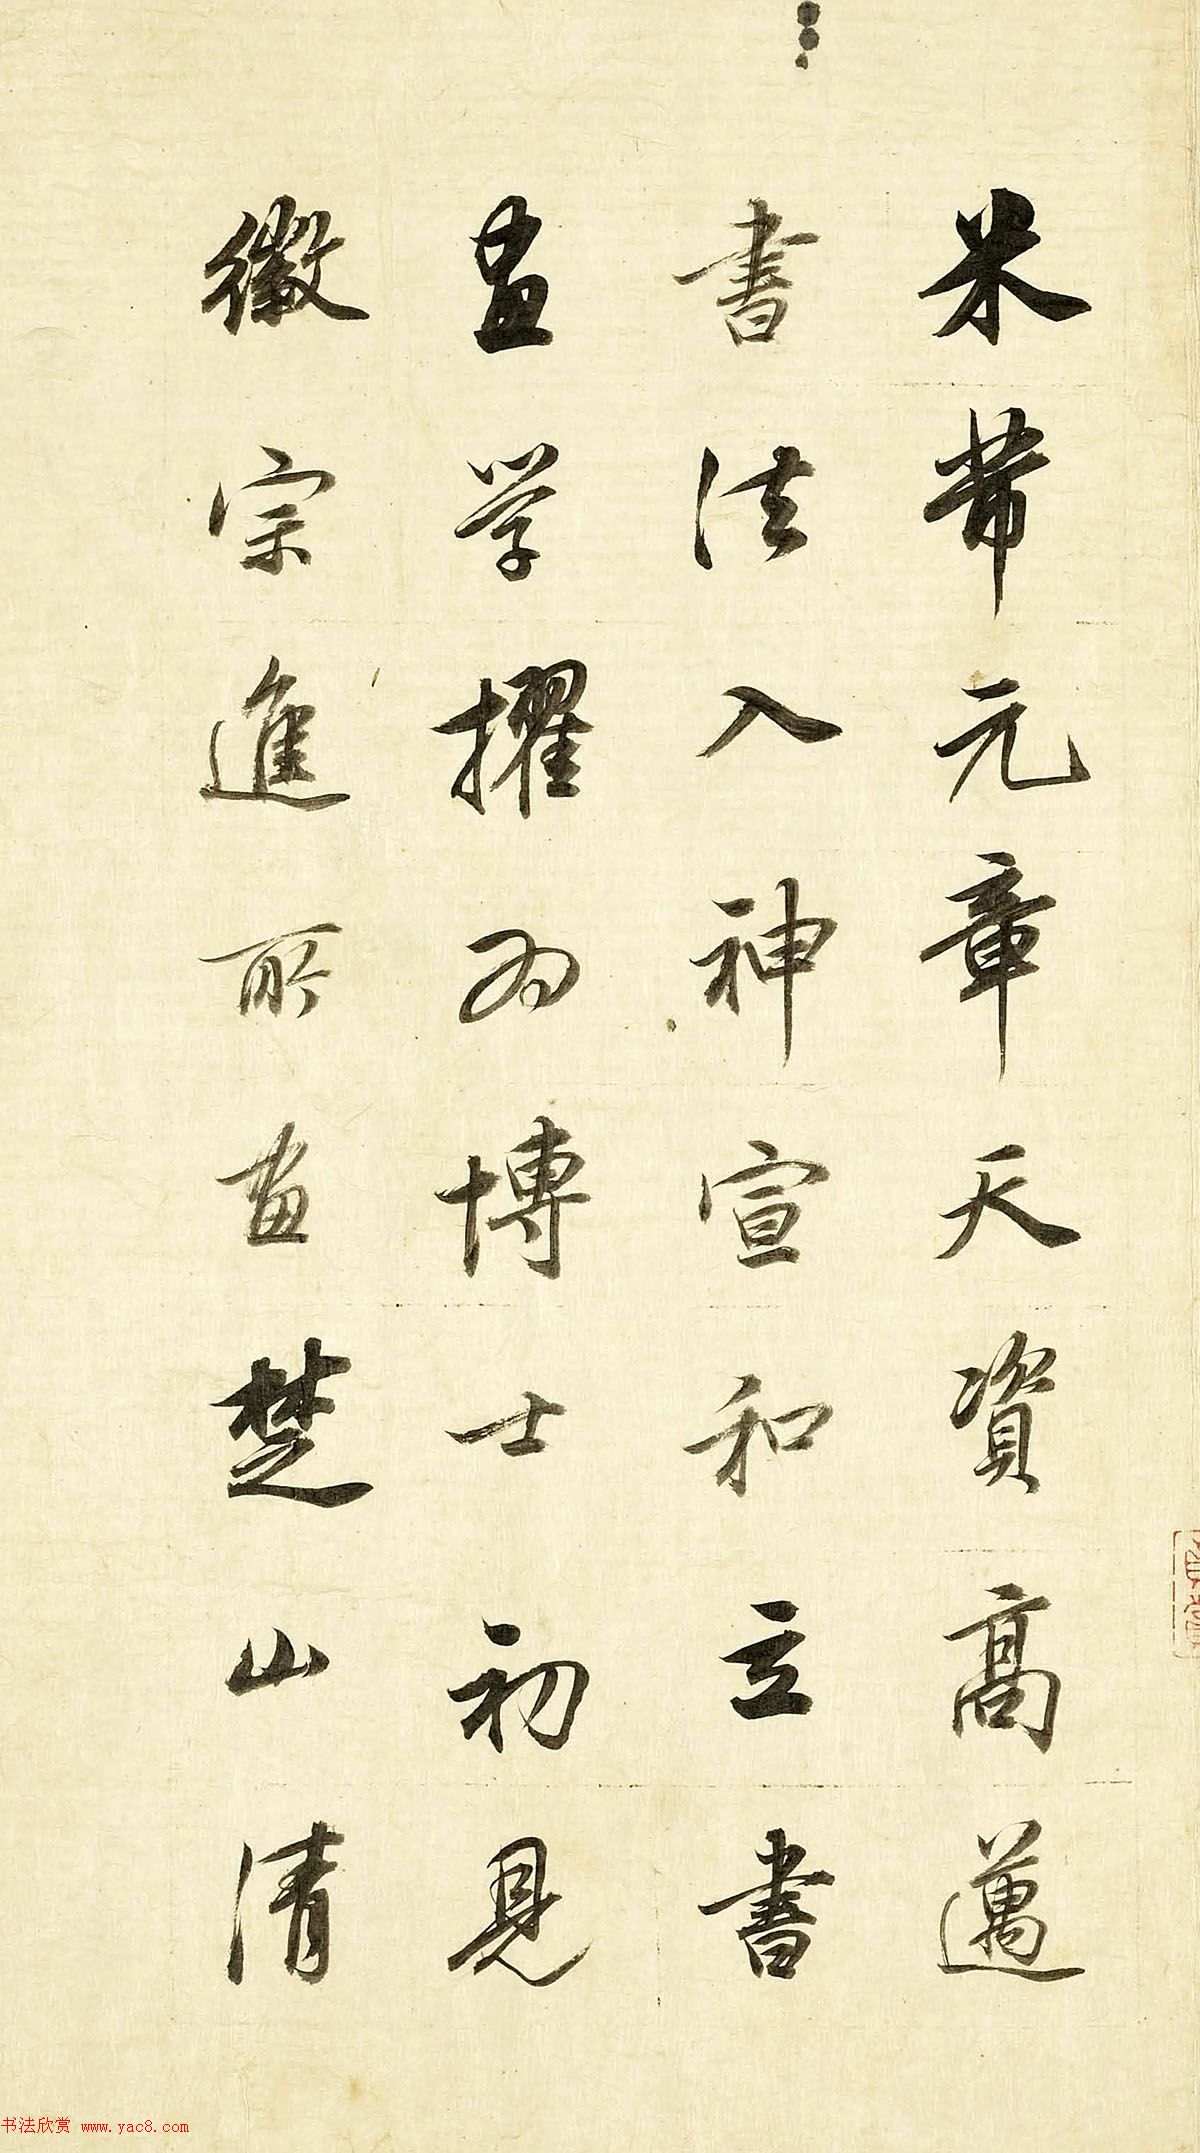 米芾元章天資高邁
書法入神宣和立書
畫学擢為博士初見
徽宗進所畫楚山清
书法欣赏 www.yac8.com